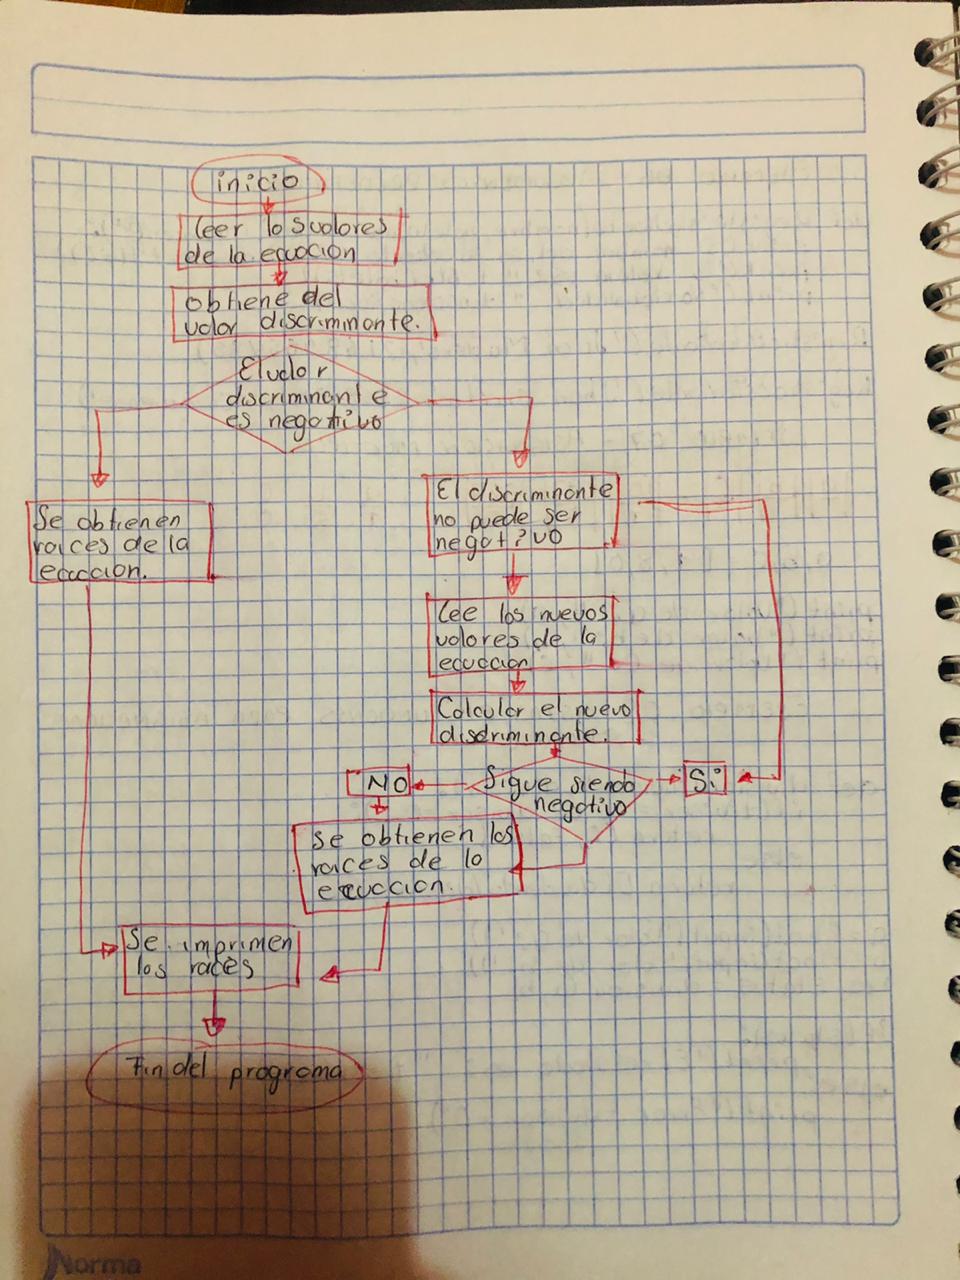 inicio
Leer los valores
de la ecuación
obtiene del
valor discriminante.
El valor
discriminante
es negativo
El discriminante
no puede ser
negat?vo
Se obtienen
raices de la
ecuacion.
Lee los nuevos
valores de la
ecuacion
Calcular el nuevo
discriminante.
NO
Sigue siendo
negativo
Si
se obtienen los
raices de la
ecuacion.
Se imprimen
los raices
Fin del programa
Norma